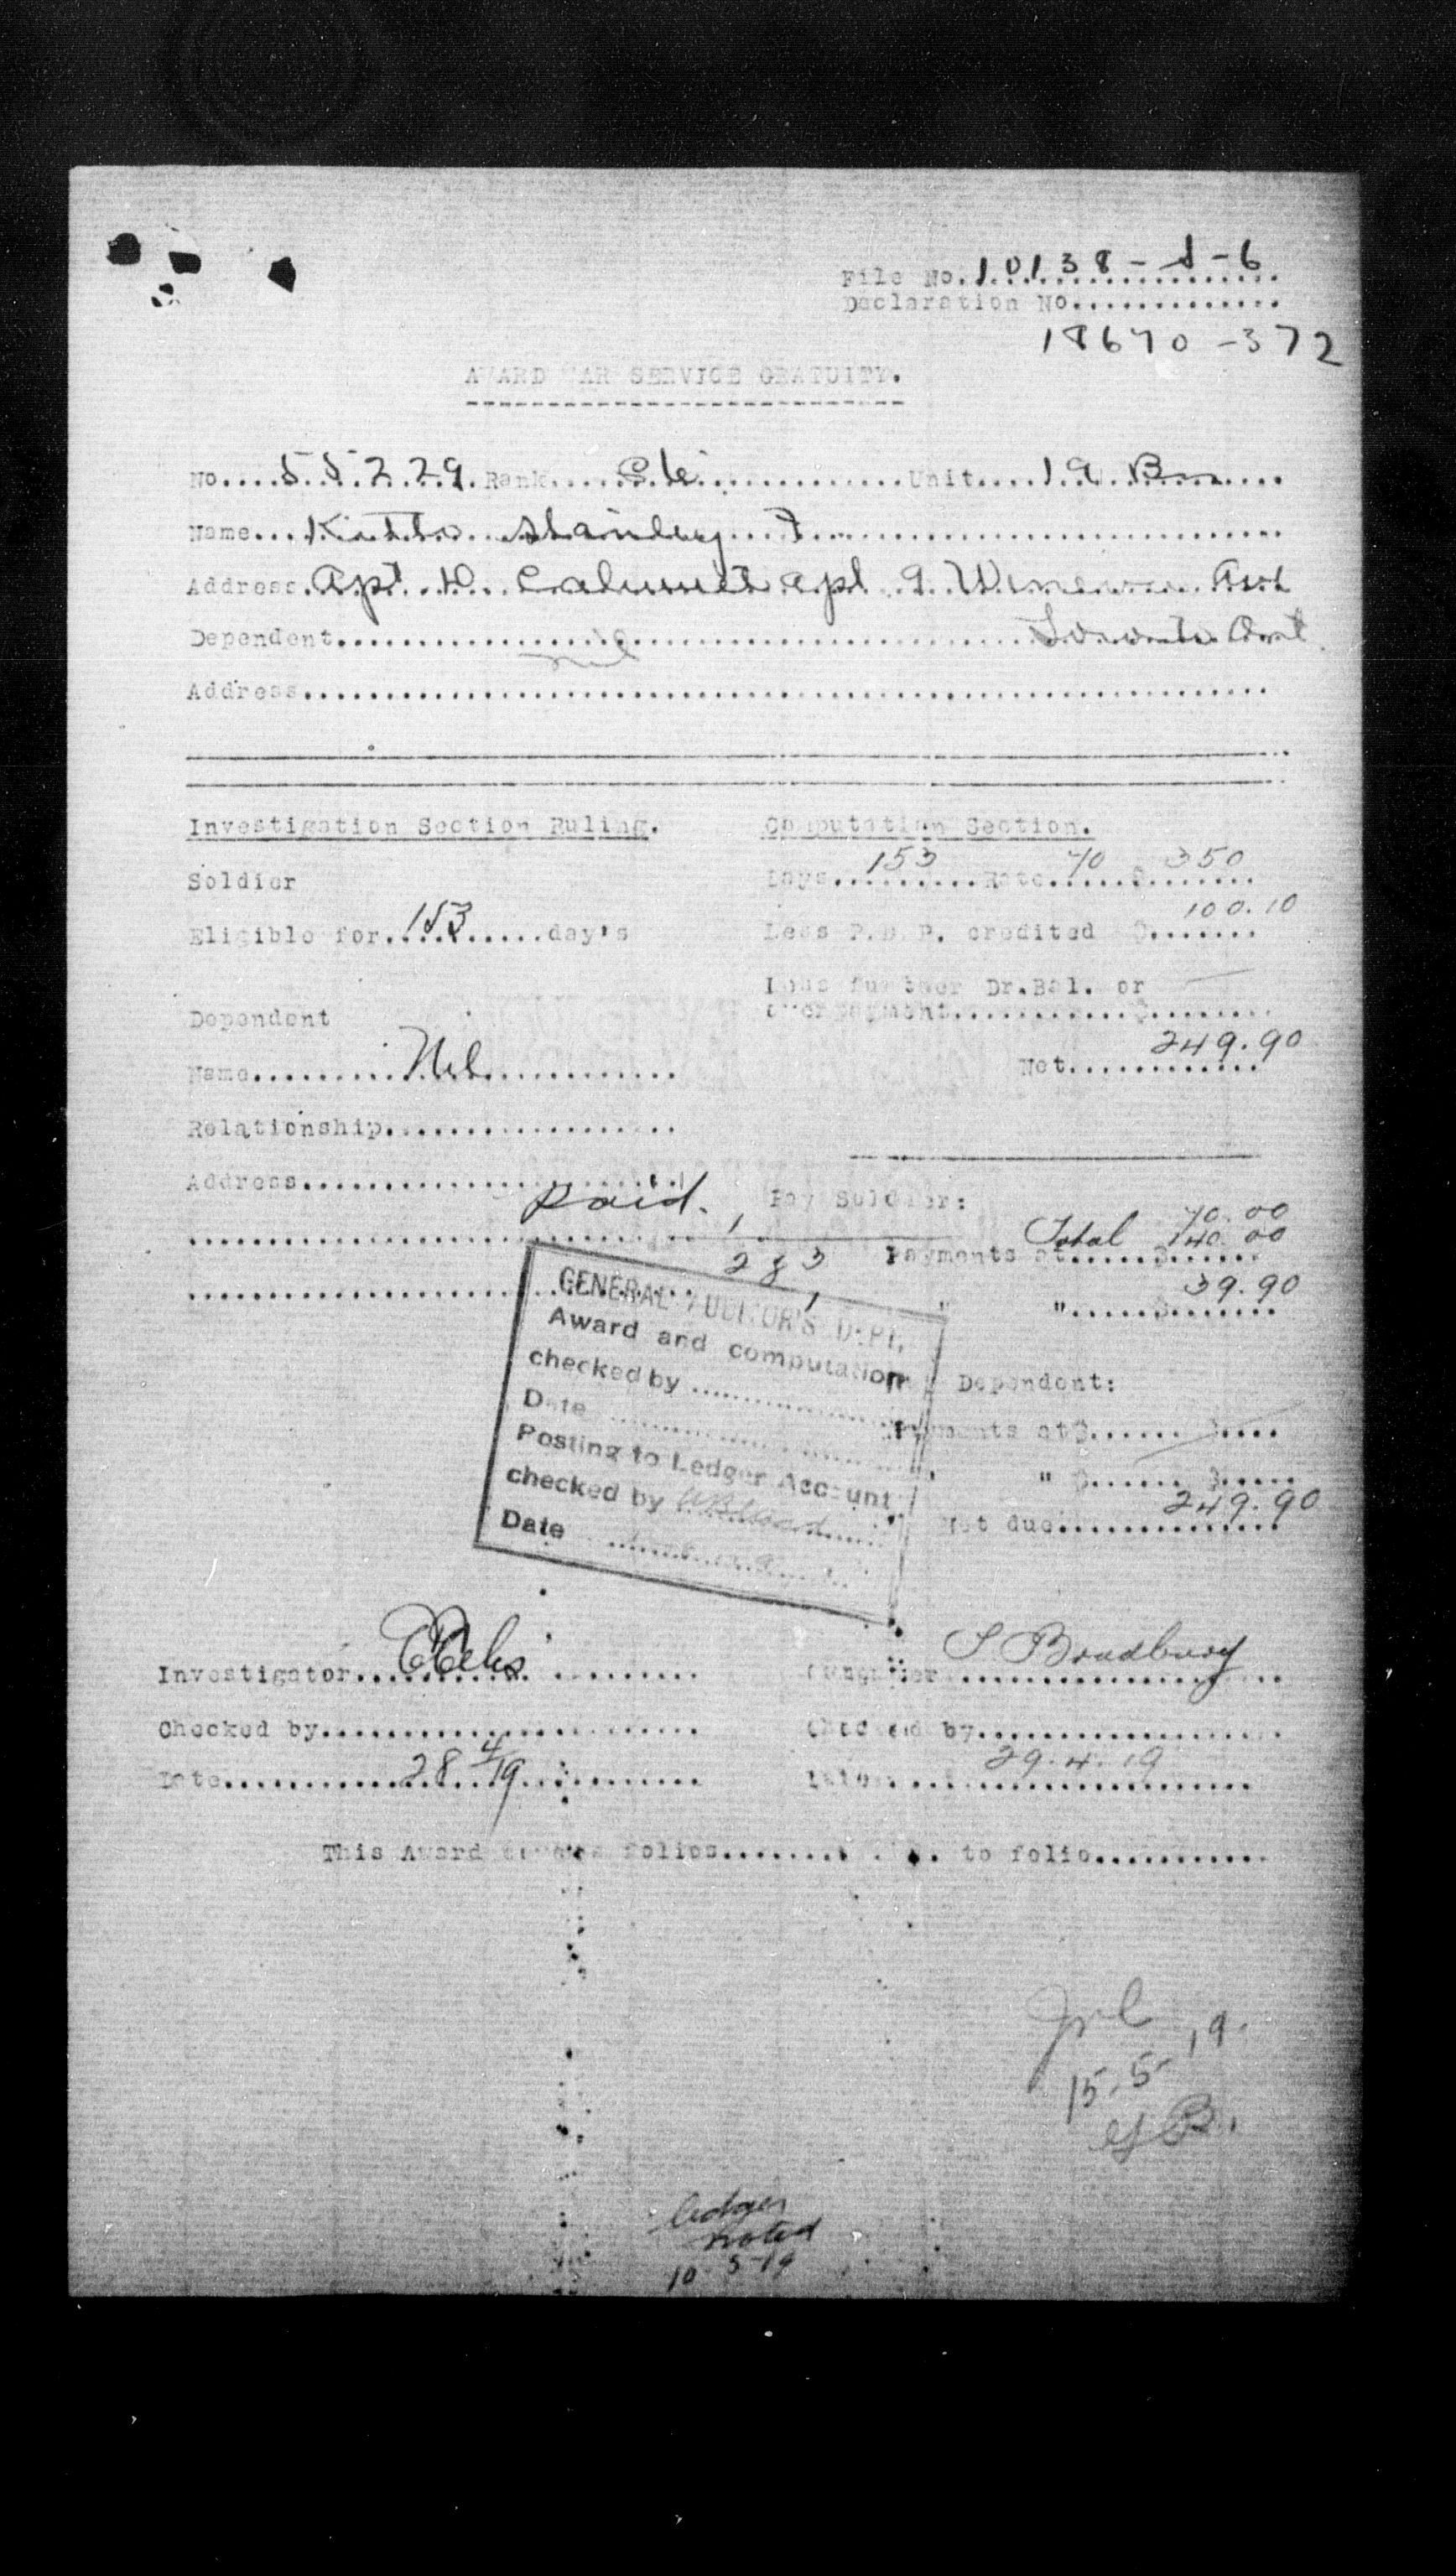 File No. 10138-S-6
Declaration No..............
18670-372
AWARD WAR SERVICE GRATUITY.
No....55229. Rank.... Pte ............Unit.... 19 Bn ....
Name... Stanley F
Address. Apt. D. Calumet apt 9 Ave
Dependent............ Toronto Ont
Address............
Investigation Section Ruling.
Computation Section.
Soldier
Days... 153 ...Rate... 70 ...$ 350
Eligible for. 153 .....day's
Less P.D.P. credited $ 100.10
Less further Dr.Bal. or
overpayment............$........
Dependent
Name......... Nil ............
Net............ 249.90
Relationship..................
Address..................
Paid.
Pay Soldier:
70.00
Total 140.00
283
Payments at.....$......
39.90
".....$.......
GENERAL AUDITOR'S DEPT.
Award and computation
checked by ..................
Date ..................
Posting to Ledger Account
checked by
Date
Dependent:
Payments at$...... $....
" $...... $.....
Net due............ 249.90
Investigator............
Computer S Bradbury
Checked by..................
Checked by..................
Date............ 28/4/19
Date. 29.4.19
This Award covers folios........ to folio............
15.5-19.
ledger
noted
10 5 19